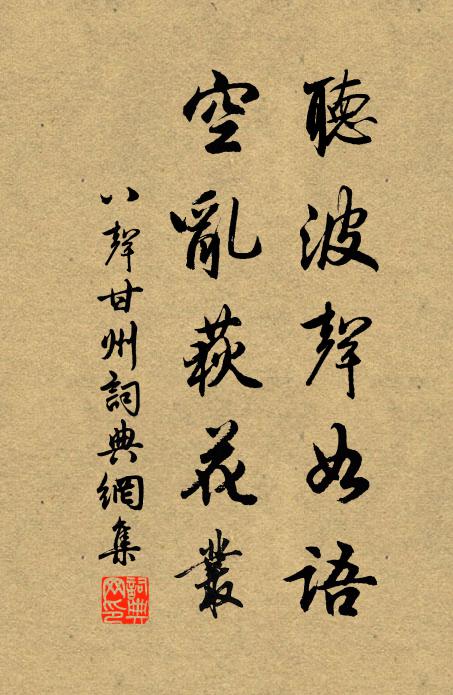 聽波聲如語
空亂荻花叢
八聲甘州詞典網集
詞典網印